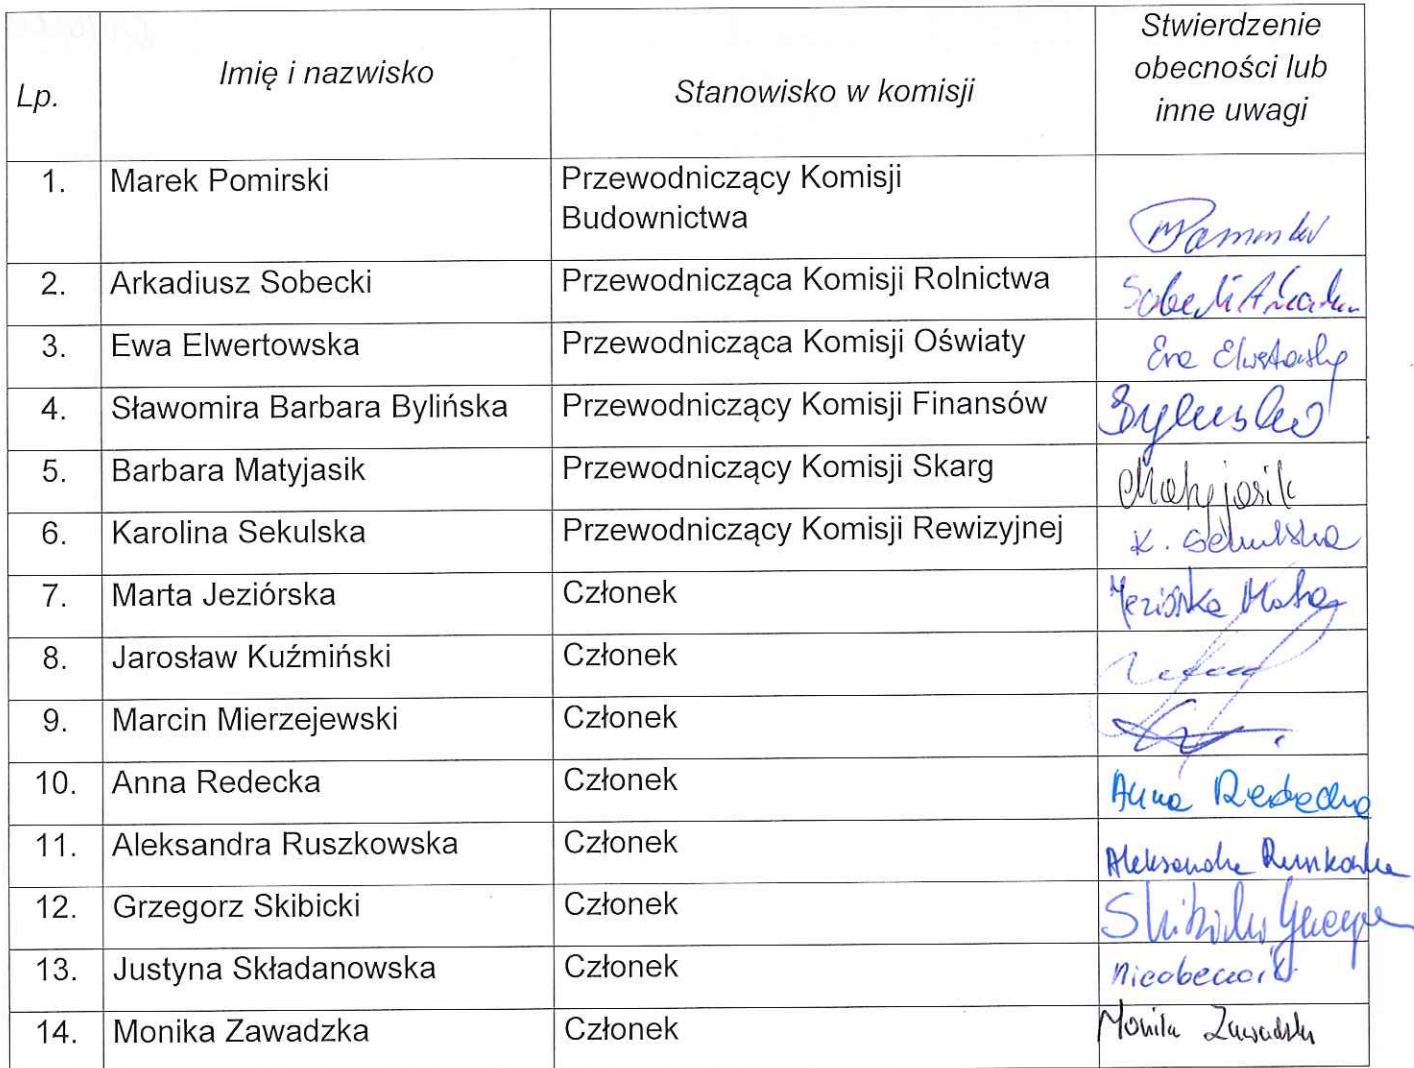 Lp.
Imię i nazwisko
Stanowisko w komisji
Stwierdzenie
obecności lub
inne uwagi
1. Marek Pomirski Przewodniczący Komisji
Budownictwa
2. Arkadiusz Sobecki Przewodnicząca Komisji Rolnictwa
3. Ewa Elwertowska Przewodnicząca Komisji Oświaty Ewa Elwertowska
4. Sławomira Barbara Bylińska Przewodniczący Komisji Finansów
5. Barbara Matyjasik Przewodniczący Komisji Skarg Matyjasik
6. Karolina Sekulska Przewodniczący Komisji Rewizyjnej K. Sekulska
7. Marta Jeziórska Członek
8. Jarosław Kuźmiński Członek
9. Marcin Mierzejewski Członek
10. Anna Redecka Członek Anna Redecka
11. Aleksandra Ruszkowska Członek Aleksandra Ruszkowska
12. Grzegorz Skibicki Członek
13. Justyna Składanowska Członek nieobecność
14. Monika Zawadzka Członek Monika Zawadzka